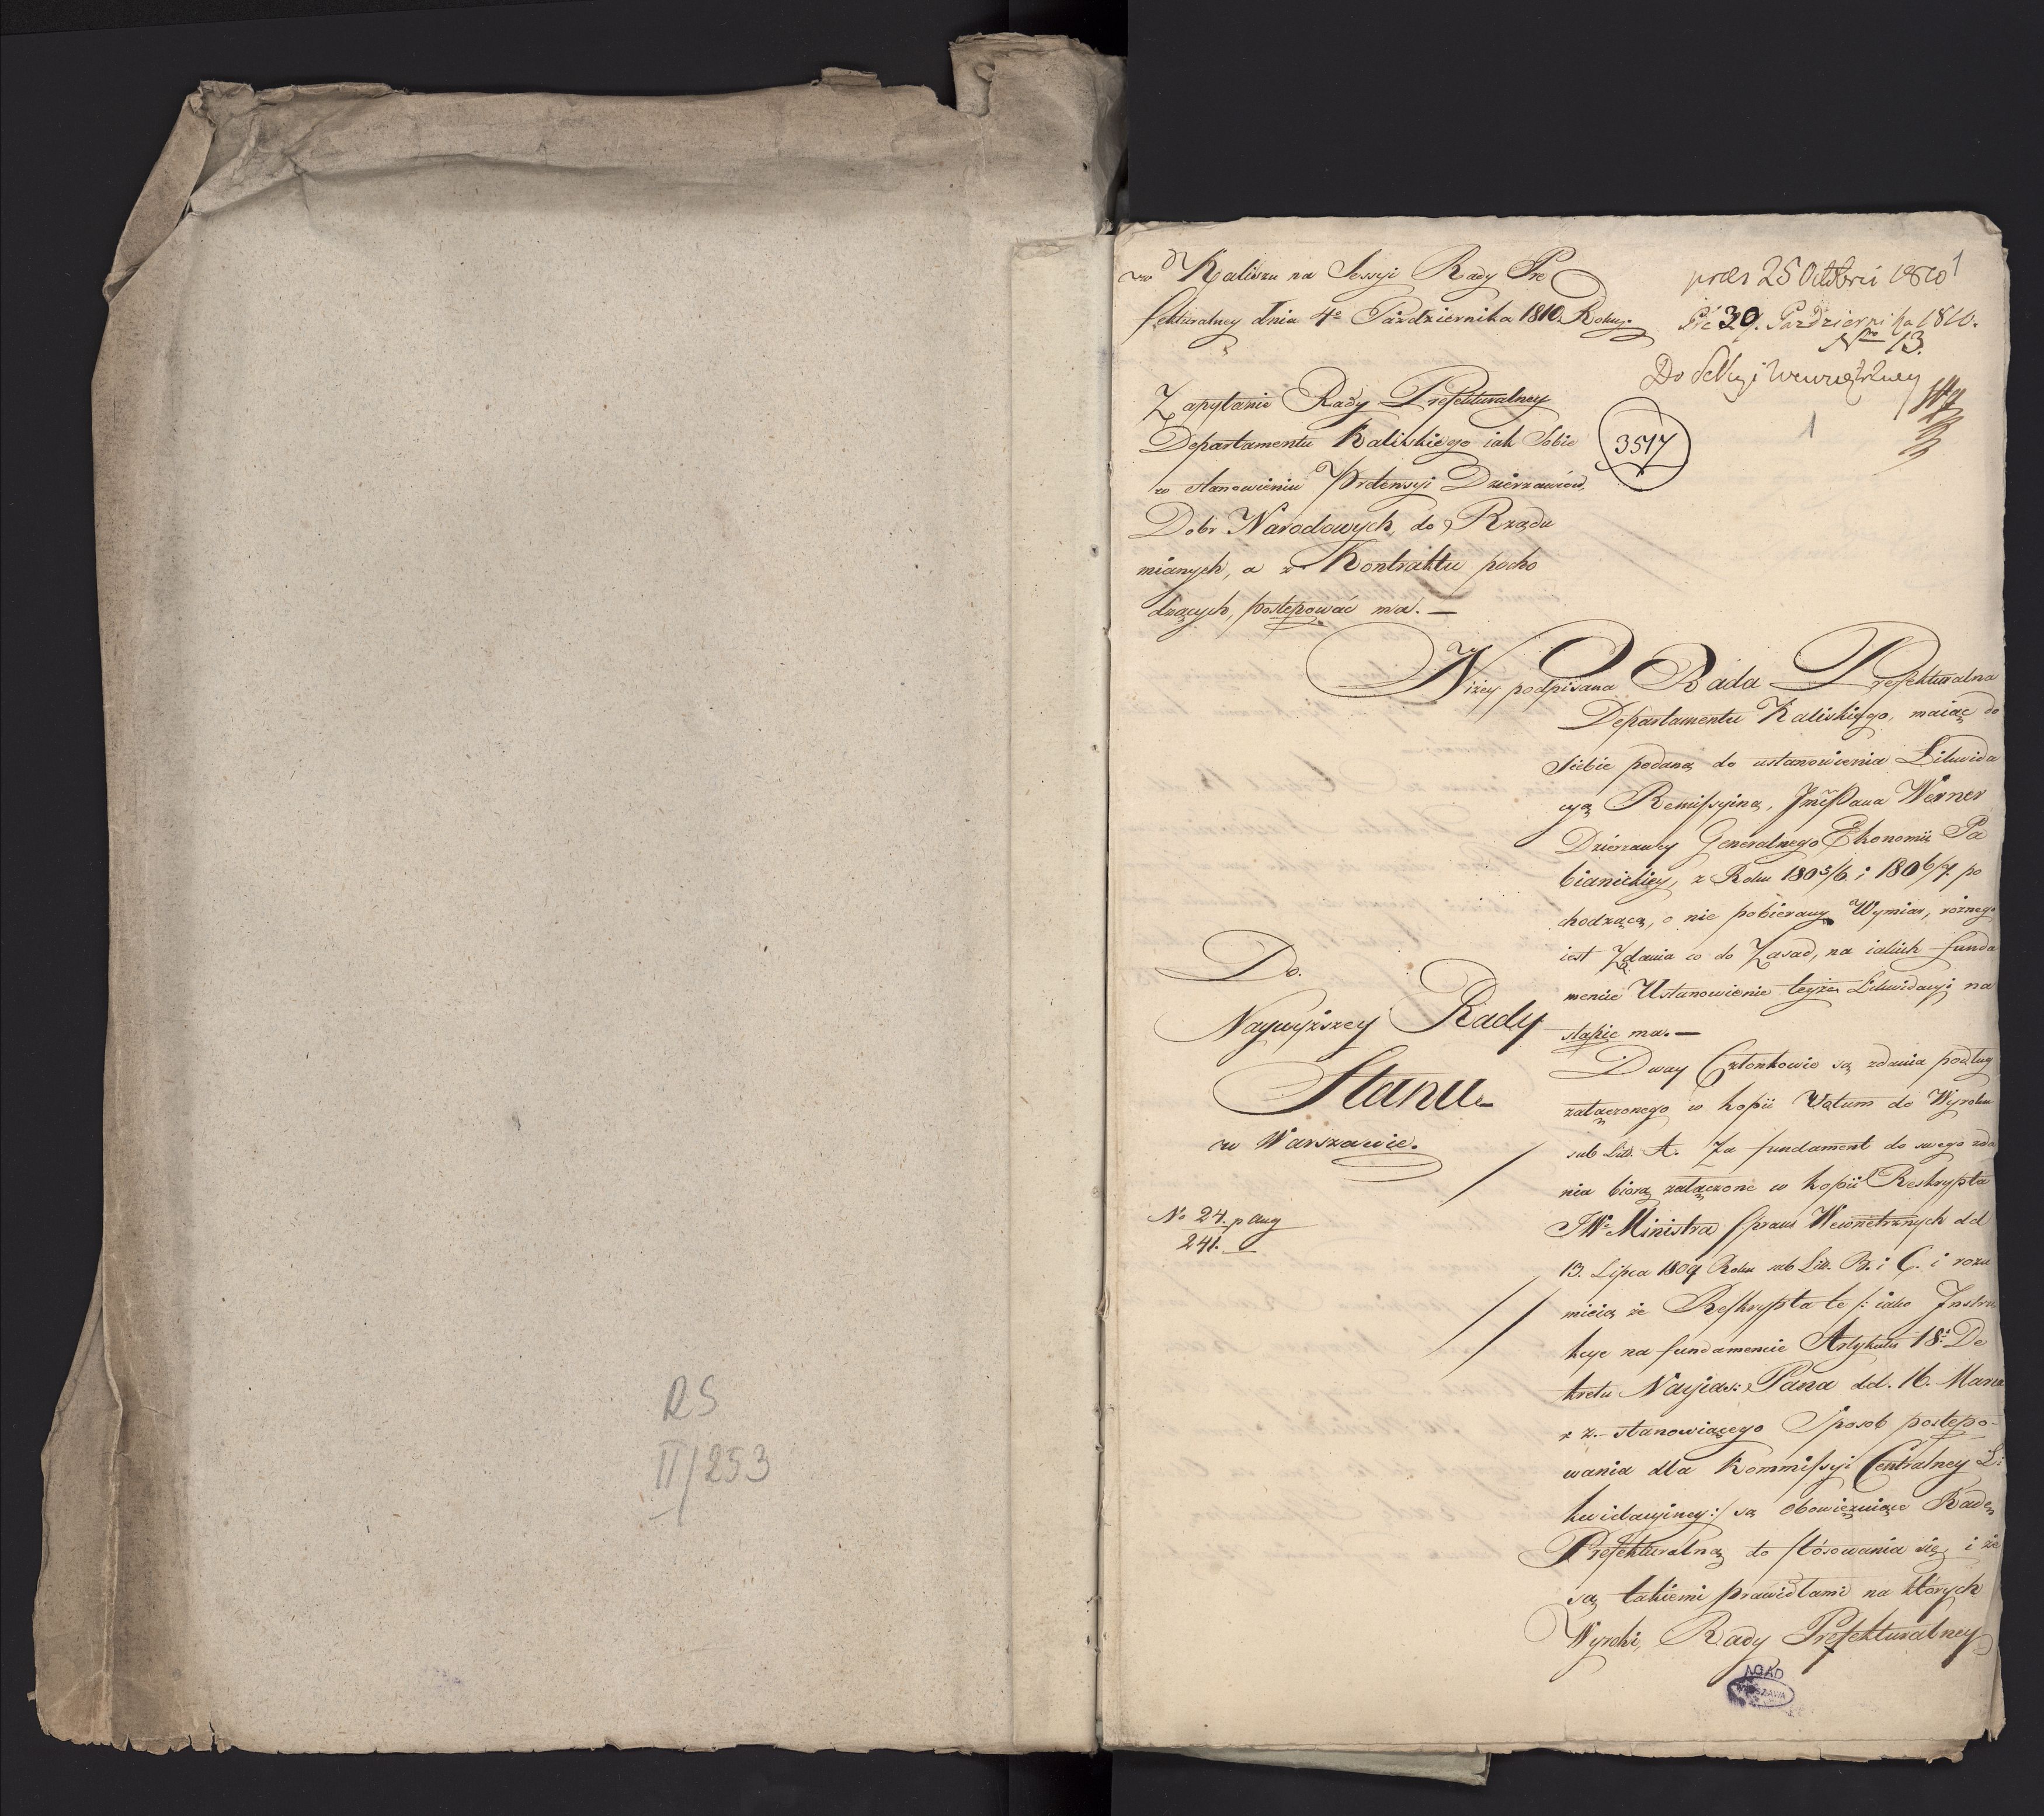 RS
II/253
w Kaliszu na Sessyi Rady Pre
fekturalney dnia 4o Października 1810. Roku.
praes 25 Octobris 1810
1
Pre 30. Październi ka 1810.
Nro 13.
Do Sekcyi Wewnętrzney
1
3517
Zapytanie Rady Prefekturalney
Departamentu Kaliskiego iak Sobie
w stanowieniu Pretensyi Dzierzawców,
Dobr Narodowych, do Rządu
mianych, a z Kontraktu pocho
dzących, postępować ma. —
Niżey podpisana Rada Prefekturalna
Departamentu Kaliskiego, maiąc do
Siebie podaną do ustanowienia Likwida
cyą Remissyiną, JmċPana Werner
Dzierzawcy Generalnego Ekonomii Pa
bianickiey, z Roku 1805/6 i 1806/7 po
chodzącą, o nie pobierany Wymiar, rożnego
iest Zdania co do Zasad, na iakich funda
mencie Ustanowienie teyże Likwidacyi na
stąpić ma. —
Dway Członkowie są zdania podług
załączonego w kopii Votum do Wyroku
sub Litt. A. Za fundament do swego zda
nia biorą załączone w kopii Reskrypta
JWo Ministra spraw Wewnetrznych dd
13. Lipca 1809 Roku sub Litt. B. i C. i rozu
mieią że Reskrypta te /: iako Instru
kcye na fundamencie Artykułu 18: De
kretu Nayias: Pana dd. 16. Marca
r z. stanowiącego Sposob postępo-
wania dla Kommissyi Centralney Li
kwidacyiney :/ są obowięzuiące Radę
Prefekturalną do stósowania się, i że
są takiemi prawidłami na których
Wyroki, Rady Prefekturalney
Do.
Naywyższey Rady
Stanu
w Warszawie.
No 24. p Aug
241. —
AGAD
WARSZAWA